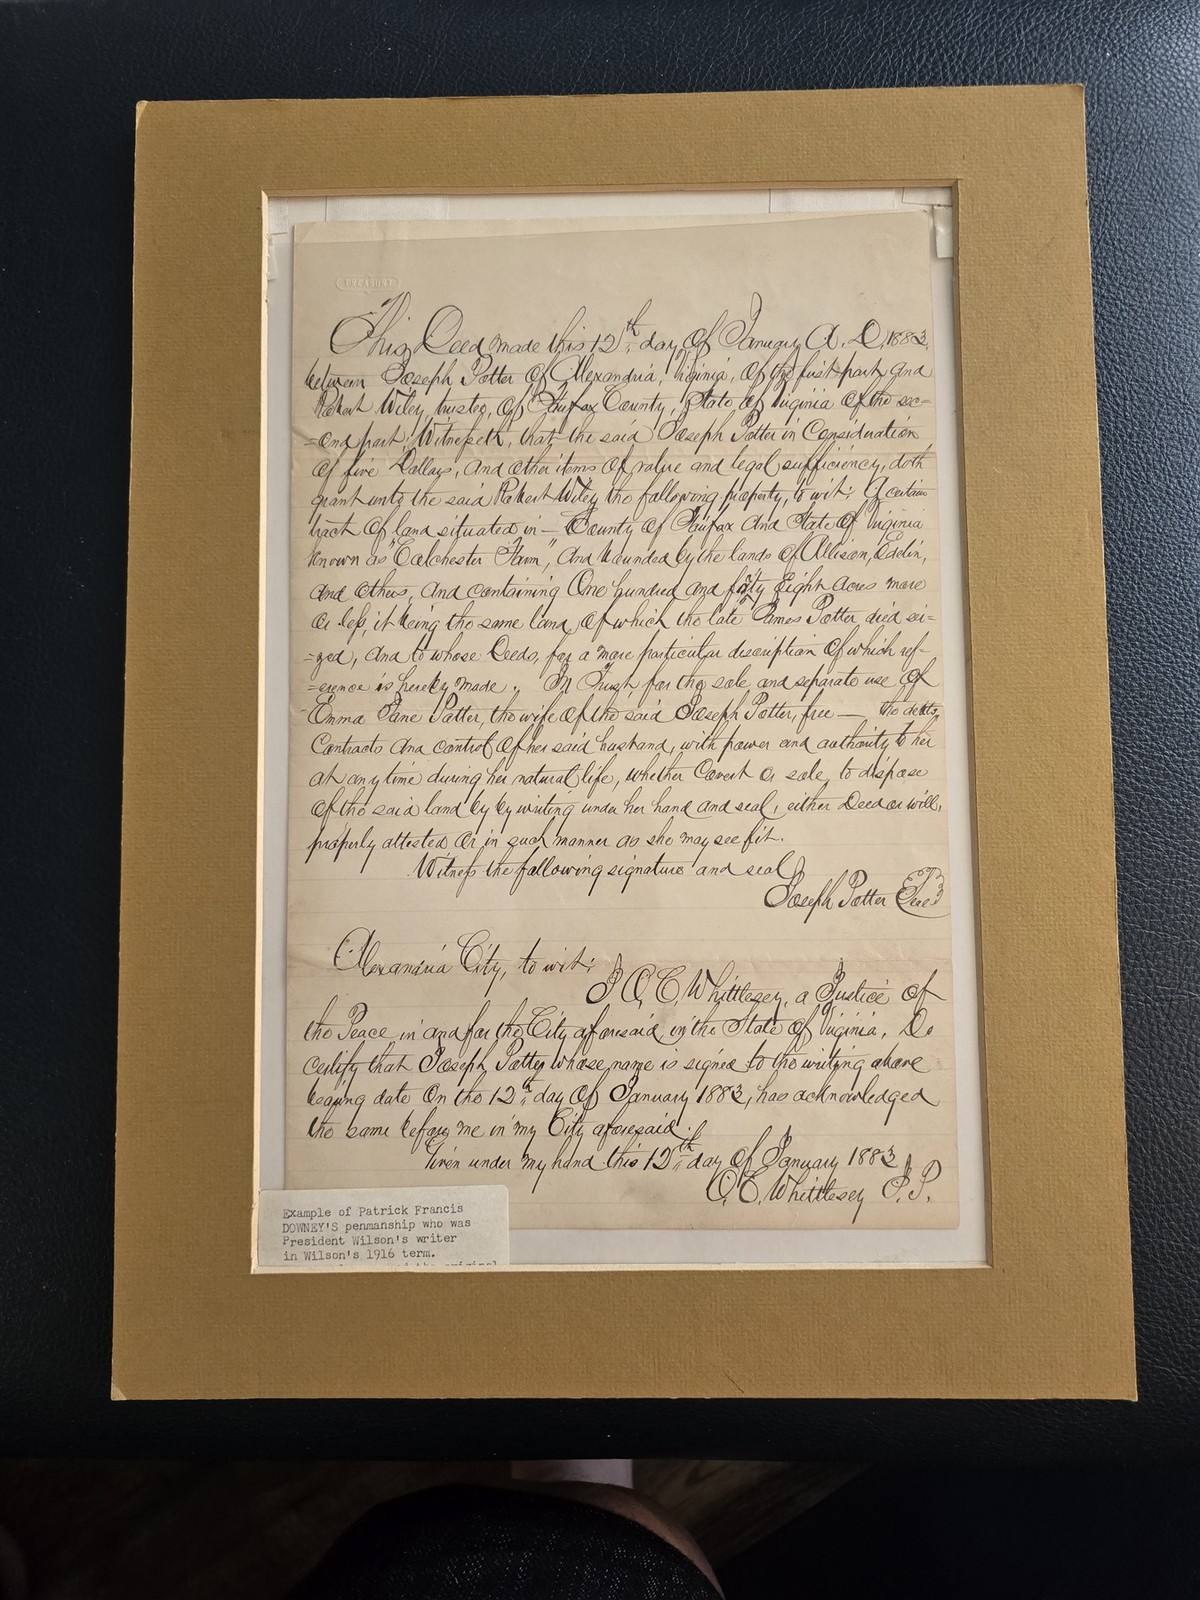 This Deed made this 12th day of January A. D. 1883,
between Joseph Potter of Alexandria, Virginia, of the first part and
Robert Wiley, trustee, of Fairfax County, State of Virginia of the sec=
=ond part; Witnesseth, that the said Joseph Potter in Consideration
of five Dollars, and other items of value and legal sufficiency, doth
grant unto the said Robert Wiley the following property, to wit; A certain
tract of land situated in — County of Fairfax and State of Virginia
known as "Colchester Farm," and bounded by the lands of Allison, Edelin,
and others, and containing One hundred and forty Eight acres more
or less, it being the same land of which the late James Potter died sei=
=zed, and to whose Deeds, for a more particular discription of which ref=
=erence is hereby made. In Trust for the sole and separate use of
Emma Jane Potter, the wife of the said Joseph Potter, free — the debts,
Contracts and control of her said husband, with power and authority to her
at any time during her natural life, whether Covert or sole, to dispose
of the said land by by writing under her hand and seal, either Deed or will,
properly attested or in such manner as she may see fit.
Witness the following signature and seal
Joseph Potter Seal
Alexandria City, to wit:
I O. C. Whittlesey, a Justice of
the Peace in and for the City aforesaid in the State of Virginia, Do
certify that Joseph Potter whose name is signed to the writing above
bearing date on the 12th day of January 1883, has acknowledged
the same before me in my City aforesaid.
Given under my hand this 12th day of January 1883
O. C. Whittlesey J. P.
Example of Patrick Francis
DOWNEY'S penmanship who was
President Wilson's writer
in Wilson's 1916 term.
the original